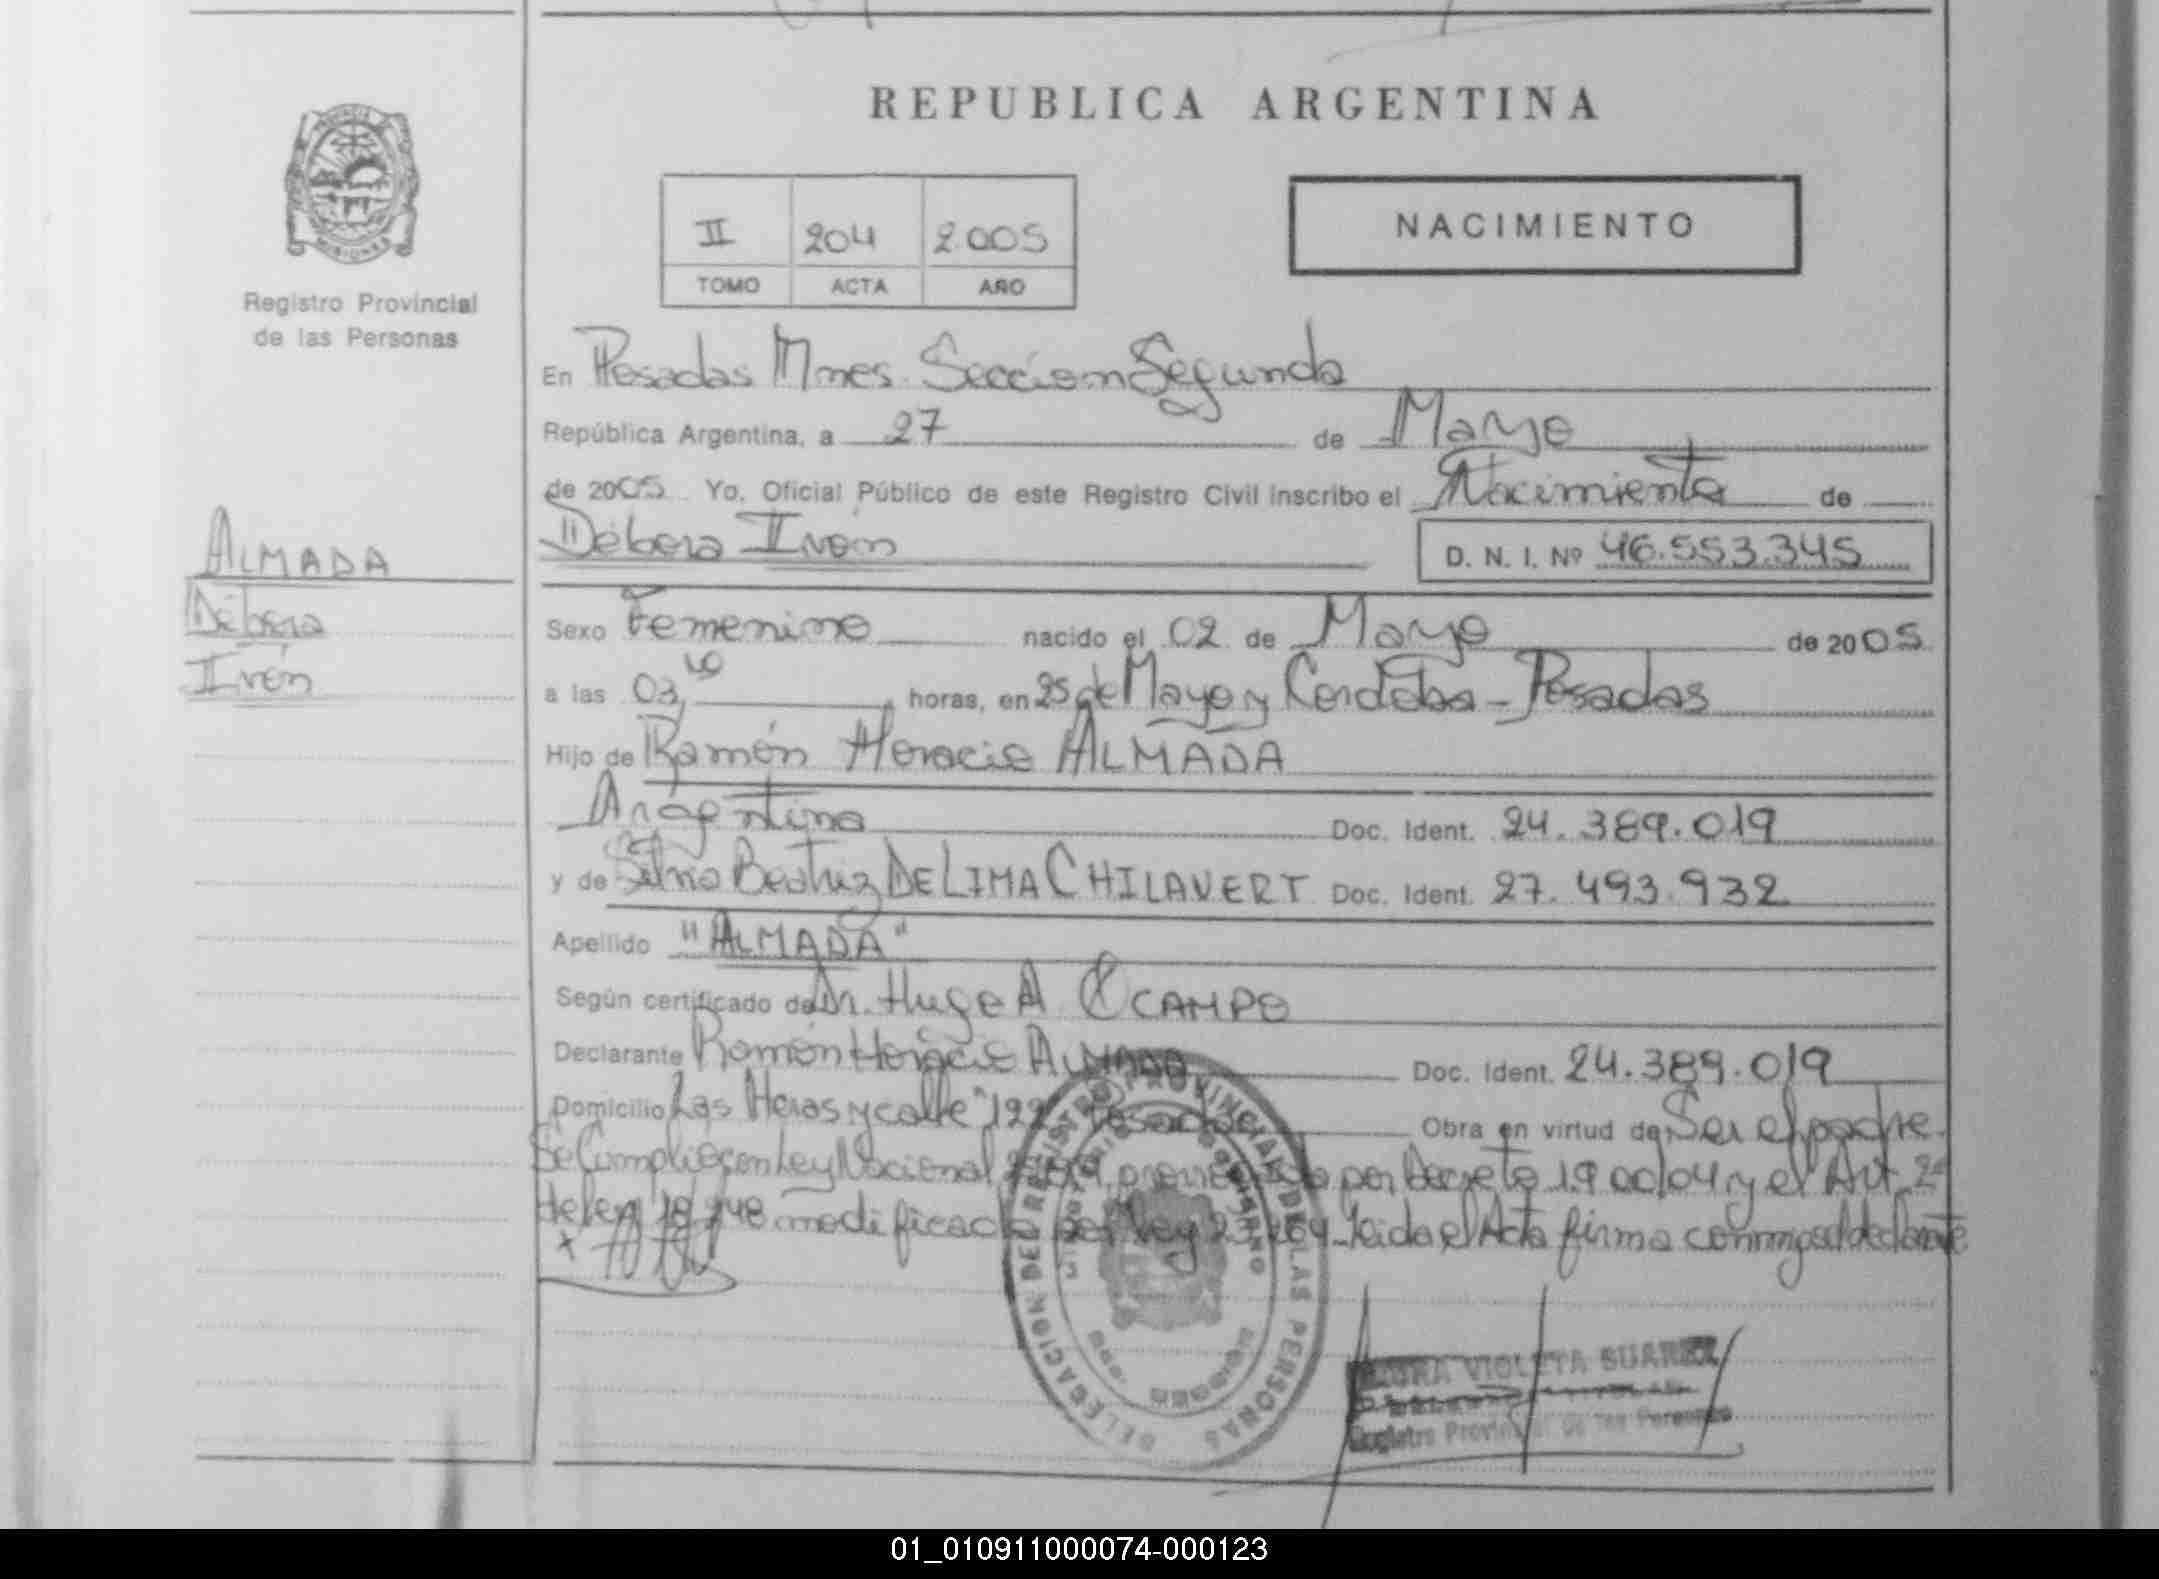 REPUBLICA ARGENTINA
II 204 2005
TOMO ACTA AÑO
NACIMIENTO
MISIONES
Registro Provincial
de las Personas
ALMADA
Débora
Ivón
En Posadas Mnes. Sección Segunda
República Argentina, a 27 de Mayo
de 2005 Yo, Oficial Público de este Registro Civil inscribo el Nacimiento de
"Débora Ivón
D. N. I. Nº 46.553.345
Sexo Femenino nacido el 02 de Mayo de 2005
a las 03,10 horas, en 25 de Mayo y Cordoba - Posadas
Hijo de Ramón Horacio ALMADA
Argentino Doc. Ident. 24.389.019
y de Silvia Beatriz DE LIMA CHILAVERT Doc. Ident. 27.493.932
Apellido "ALMADA"
Según certificado de Dr. Hugo A OCAMPO
Declarante Ramón Horacio ALMADA Doc. Ident. 24.389.019
Domicilio Las Heras y calle 122 Posadas Obra en virtud de Ser el padre.
Se Cumplió con Ley Nacional por Decreto 19 04 y el Art. 2º
de ley 18.248 modificada por ley 23.264 - Leida el Acta firma conmigo el declarante
x
DELEGACION DEL REGISTRO PROVINCIAL DE LAS PERSONAS
VIOLETA SUAREZ
Registro Provincial de las Personas
01_010911000074-000123